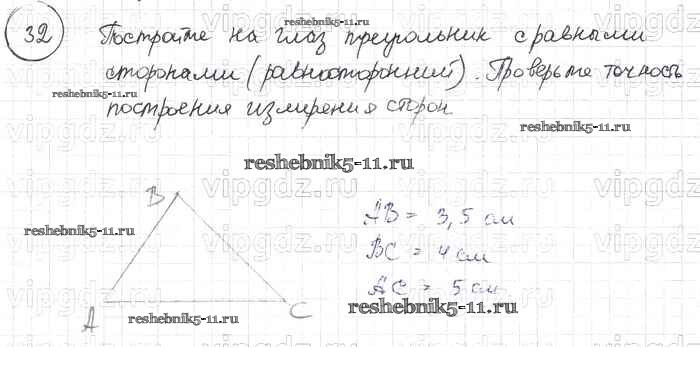 32 Постройте на глаз треугольник с равными
reshebnik5-11.ru
сторонами (равносторонний). Проверьте точность
reshebnik5-11.ru
построения измерения сторон
reshebnik5-11.ru
reshebnik5-11.ru
vipgdz.ru
B
AB = 3,5 см
reshebnik5-11.ru
BC = 4 см
AC = 5 см
reshebnik5-11.ru
A
C
reshebnik5-11.ru